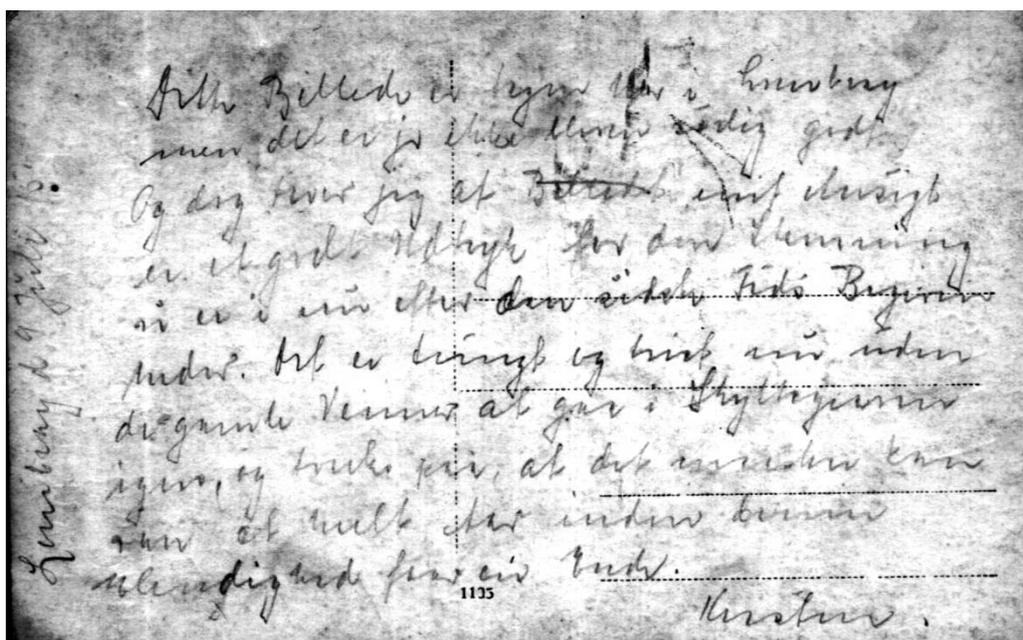 Dette Billede er tagen her i
men det er jo ikke videre godt
Og dog tror jeg at Billedet mit Ansigt
er et godt Udtryk for den Stemning
vi er i nu efter den sidste Tids Begiven
heder. Det er tungt og trist nu uden
de gamle Venner at gaa i Skyttegraven
igen, og tænke paa, at det maaske kan
vare et helt Aar inden denne
Elendighed faar en Ende.
Kresten.
d 9 Juli 15.
1135